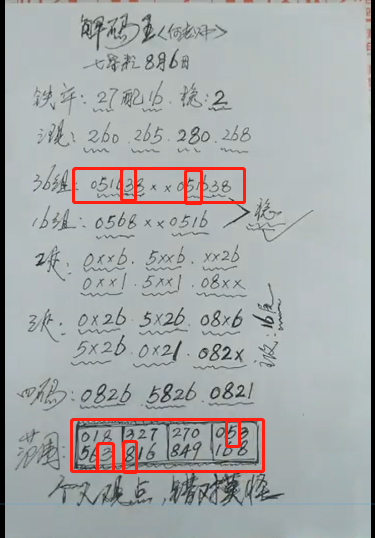 解码王<何老师>
七星彩8月6日
27配16.稳:2
二现:260.265.280.268
36组:051638××051638
16组:0568××0516
稳
2定:0xx6.5xx6.xx26
0xx1.5xx1.08xx
三定:0x26 5x26 08x6
5x26.0x21.082x
四码:0826.5826.0821
范围:018 327 270 053
563 816 849 168
个人观点,错对莫怪